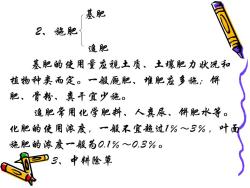 基肥
2、施肥
追肥
基肥的使用量应视土质、土壤肥力状况和
植物种类而定。一般厩肥、堆肥应多施；饼
肥、骨粉、粪干宜少施。
追肥常用化学肥料、人粪尿、饼肥水等。
化肥的使用浓度，一般不宜超过1%～3%，叶面
施肥的浓度一般为0.1%～0.3%。
3、中耕除草